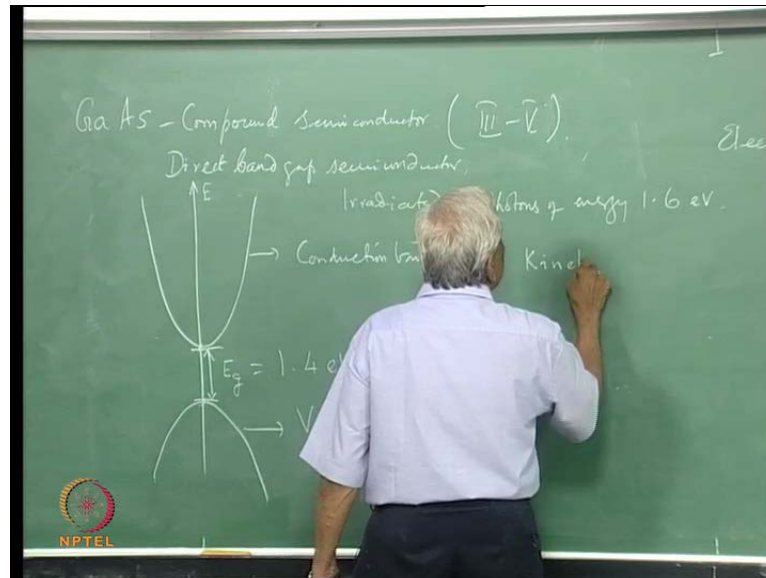 GaAs - Compound semiconductor ( III - V ).
Elec
Direct band gap semiconductor.
E
Irradiated photons of energy 1.6 eV.
Conduction
Kine
Eg = 1.4 e
V
NPTEL